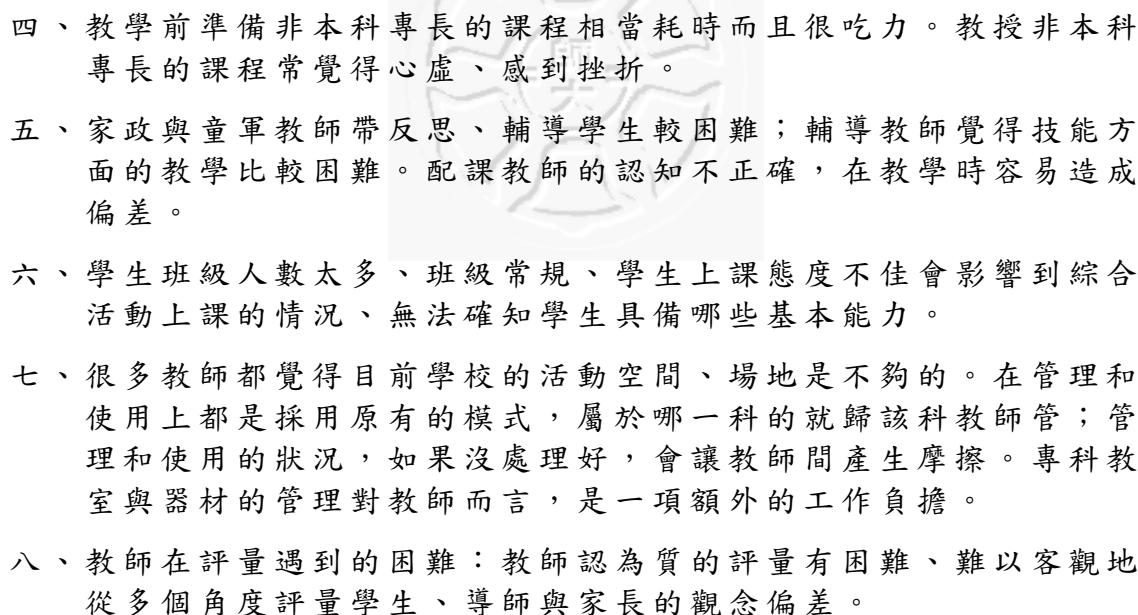 四、教學前準備非本科專長的課程相當耗時而且很吃力。教授非本科
專長的課程常覺得心虛、感到挫折。
五、家政與童軍教師帶反思、輔導學生較困難；輔導教師覺得技能方
面的教學比較困難。配課教師的認知不正確，在教學時容易造成
偏差。
六、學生班級人數太多、班級常規、學生上課態度不佳會影響到綜合
活動上課的情況、無法確知學生具備哪些基本能力。
七、很多教師都覺得目前學校的活動空間、場地是不夠的。在管理和
使用上都是採用原有的模式，屬於哪一科的就歸該科教師管；管
理和使用的狀況，如果沒處理好，會讓教師間產生摩擦。專科教
室與器材的管理對教師而言，是一項額外的工作負擔。
八、教師在評量遇到的困難：教師認為質的評量有困難、難以客觀地
從多個角度評量學生、導師與家長的觀念偏差。